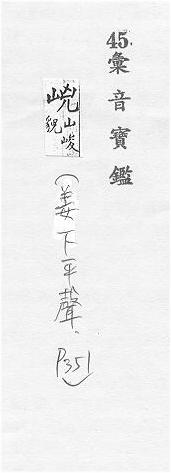 45.彙音寶鑑
山峻
貌
(姜下平聲、P351)